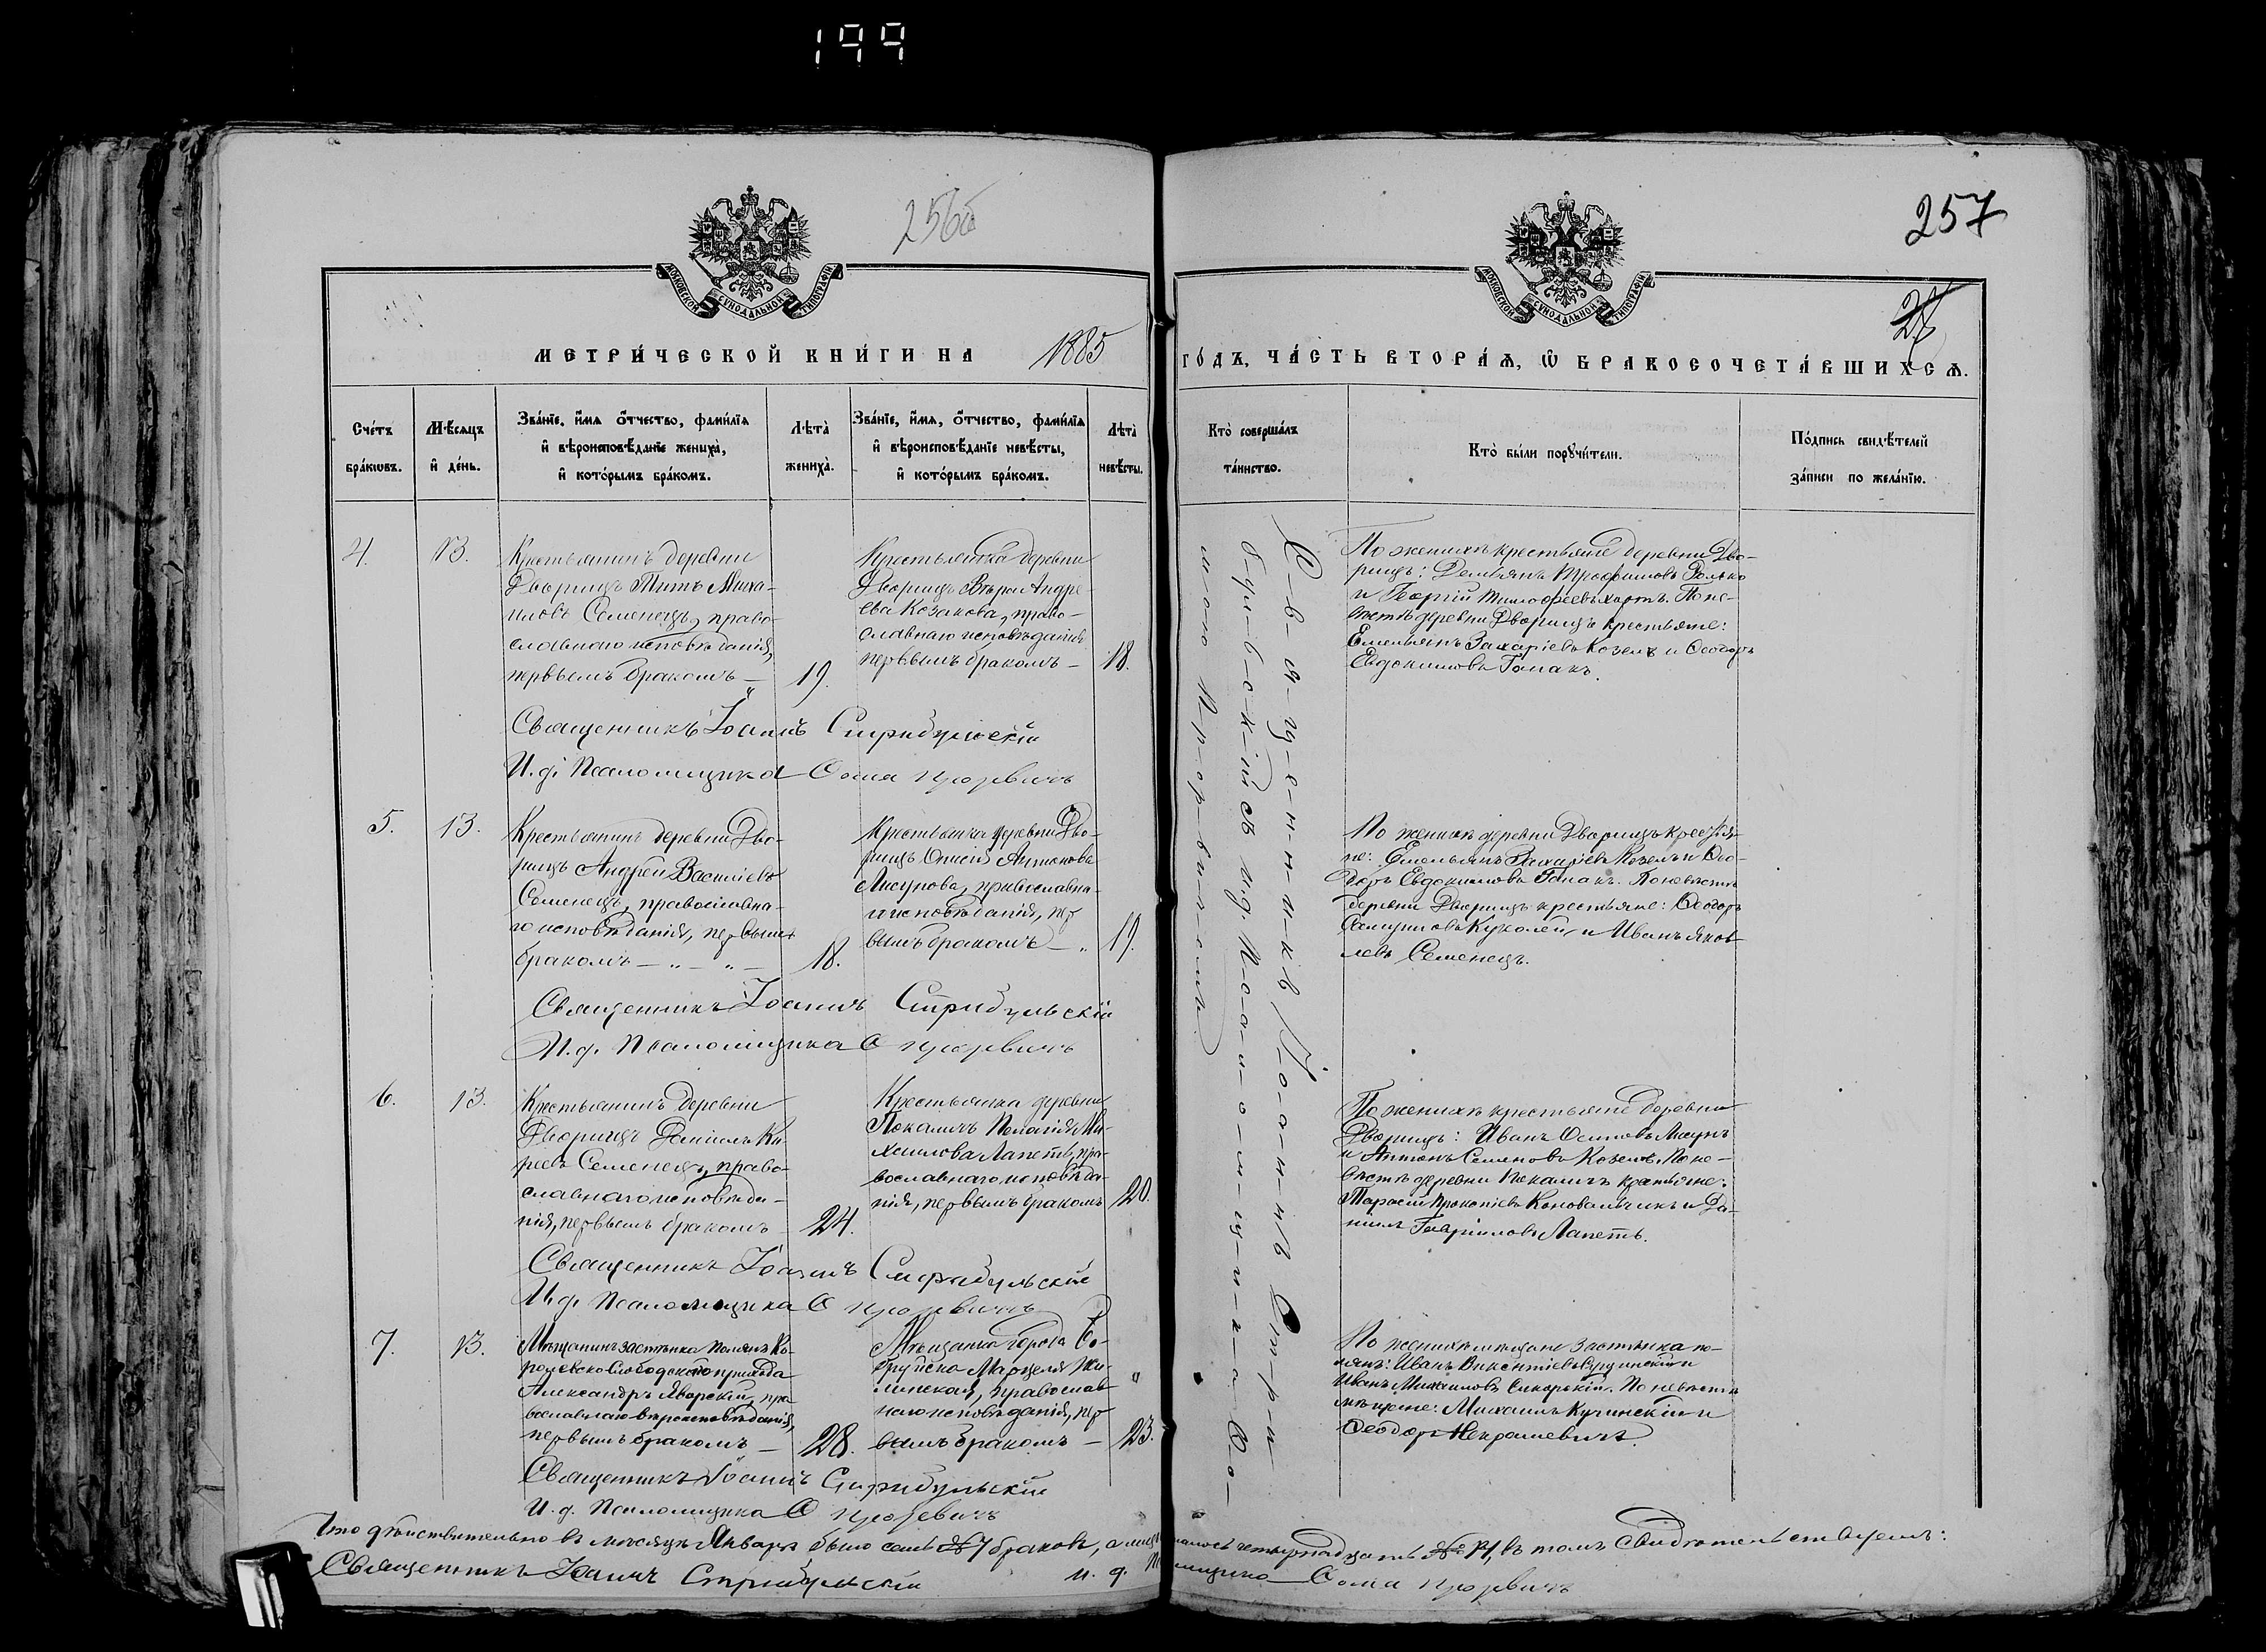 199
256б
257
28
МОСКОВСКОЙ СѴНОДАЛЬНОЙ ТИПОГРАФІИ
МОСКОВСКОЙ СѴНОДАЛЬНОЙ ТИПОГРАФІИ
МЕТРИ́ЧЕСКОЙ КНИ́ГИ НА 1885 ГО́ДЪ, ЧА́СТЬ ВТОРА́Ѧ, Ѽ БРАКОСОЧЕТА́ВШИХСѦ.
Сче́тъ бра́кѡвъ.
Мѣ́сѧцъ и҆ де́нь.
Зва́нїе, и҆́мѧ ѻ҆́тчество, фами́лїѧ и҆ вѣроисповѣ́данїе жениха̀, и҆ кото́рымъ бра́комъ.
Лѣта̀ жениха̀.
Зва́нїе, и҆́мѧ, ѻ҆́тчество, фами́лїѧ и҆ вѣроисповѣ́данїе невѣ́сты, и҆ кото́рымъ бра́комъ.
Лѣта̀ невѣ́сты.
Кто̀ соверша́лъ та́инство.
Кто̀ бы́ли порꙋчи́тели.
По́дпись свидѣ́телей за́писи по жела́нїю.
4.
13.
Крестьянинъ деревни
Дворищъ Титъ Миха-
иловъ Семенецъ, право-
славнаго исповѣданія,
первымъ бракомъ —
19.
Крестьянка деревни
Дворищъ Вѣра Андре-
ева Козакова, право-
славнаго исповѣданія
первымъ бракомъ —
18.
По женихѣ крестьяне деревни Дво-
рищъ: Демьянъ Трофимовъ
и Георгій Тимофеевъ По не-
вѣстѣ деревни Дворищъ крестьяне:
Емельянъ Захаріевъ Козелъ и Ѳеодоръ
Евдокимовъ Гапакъ.
Священникъ Іоаннъ Стрибульскій
И. д. Псаломщика Ѳома
5.
13.
Крестьянинъ деревни Дво-
рищъ Андрей Василіевъ
Семенецъ, православна-
го исповѣданія, первымъ
бракомъ — „ — „ —
18.
Крестьянка деревни Дво-
рищъ Антонова
православна-
го исповѣданія, пер-
вымъ бракомъ — „
19.
По женихѣ деревни Дворищъ крестья-
не: Емельянъ Захаріевъ Козелъ и Ѳео-
доръ Евдокимовъ Гапакъ. По невѣстѣ
деревни Дворищъ крестьяне: Ѳеодоръ
Куколей, и Иванъ Яков-
левъ Семенецъ.
Священникъ Іоаннъ Стрибульскій
И. д. Псаломщика Ѳ
6.
13.
Крестьянинъ деревни
Дворищъ Даніилъ Ки-
ревъ Семенецъ, право-
славнаго исповѣда-
нія, первымъ бракомъ
24.
Крестьянка деревни
Покаличъ Пелагія Ми-
хаилова Лапеть, пра-
вославнаго исповѣда-
нія, первымъ бракомъ
20.
По женихѣ крестьяне деревни
Дворищъ: Иванъ Осиповъ Лисунъ
и Антонъ Семеновъ Козелъ. По не-
вѣстѣ деревни Покаличъ крестьяне:
Тарасій Прокопіевъ Коновальчикъ и Да-
ніилъ Гавріиловъ Лапеть.
Священникъ Іоаннъ Стрибульскій
И. д. Псаломщика Ѳ
7.
13.
Мѣщанинъ застѣнка Полянъ Ко-
ролевско-Слободскаго прихода
Александръ Яворскій, пра-
вославнаго вѣроисповѣданія,
первымъ бракомъ —
28.
Мѣщанка города Бо-
бруйска Марцеля Жи-
линская, православ-
наго исповѣданія, пер-
вымъ бракомъ —
23.
По женихѣ мѣщане застѣнка По-
лянъ: Иванъ Викентіевъ и
Иванъ Михаиловъ Сикорскій. По невѣстѣ
мѣщане: Михаилъ Кучинскій и
Ѳеодоръ Некрашевичъ.
Священникъ Іоаннъ Стрибульскій
И. д. Псаломщика Ѳ
С-в-я-щ-е-н-н-и-к-ъ І-о-а-н-н-ъ С-т-р-и-
б-у-л-ь-с-к-і-й съ и. д. П-с-а-л-о-м-щ-и-к-а Ѳо-
мою
Что дѣйствительно въ мѣсяцѣ Январѣ было семь № 7 браковъ, а лицъ четырнадцать № 14, въ томъ свидѣтельствуемъ:
Священникъ Іоаннъ Стрибульскій и. д. Псаломщика Ѳома